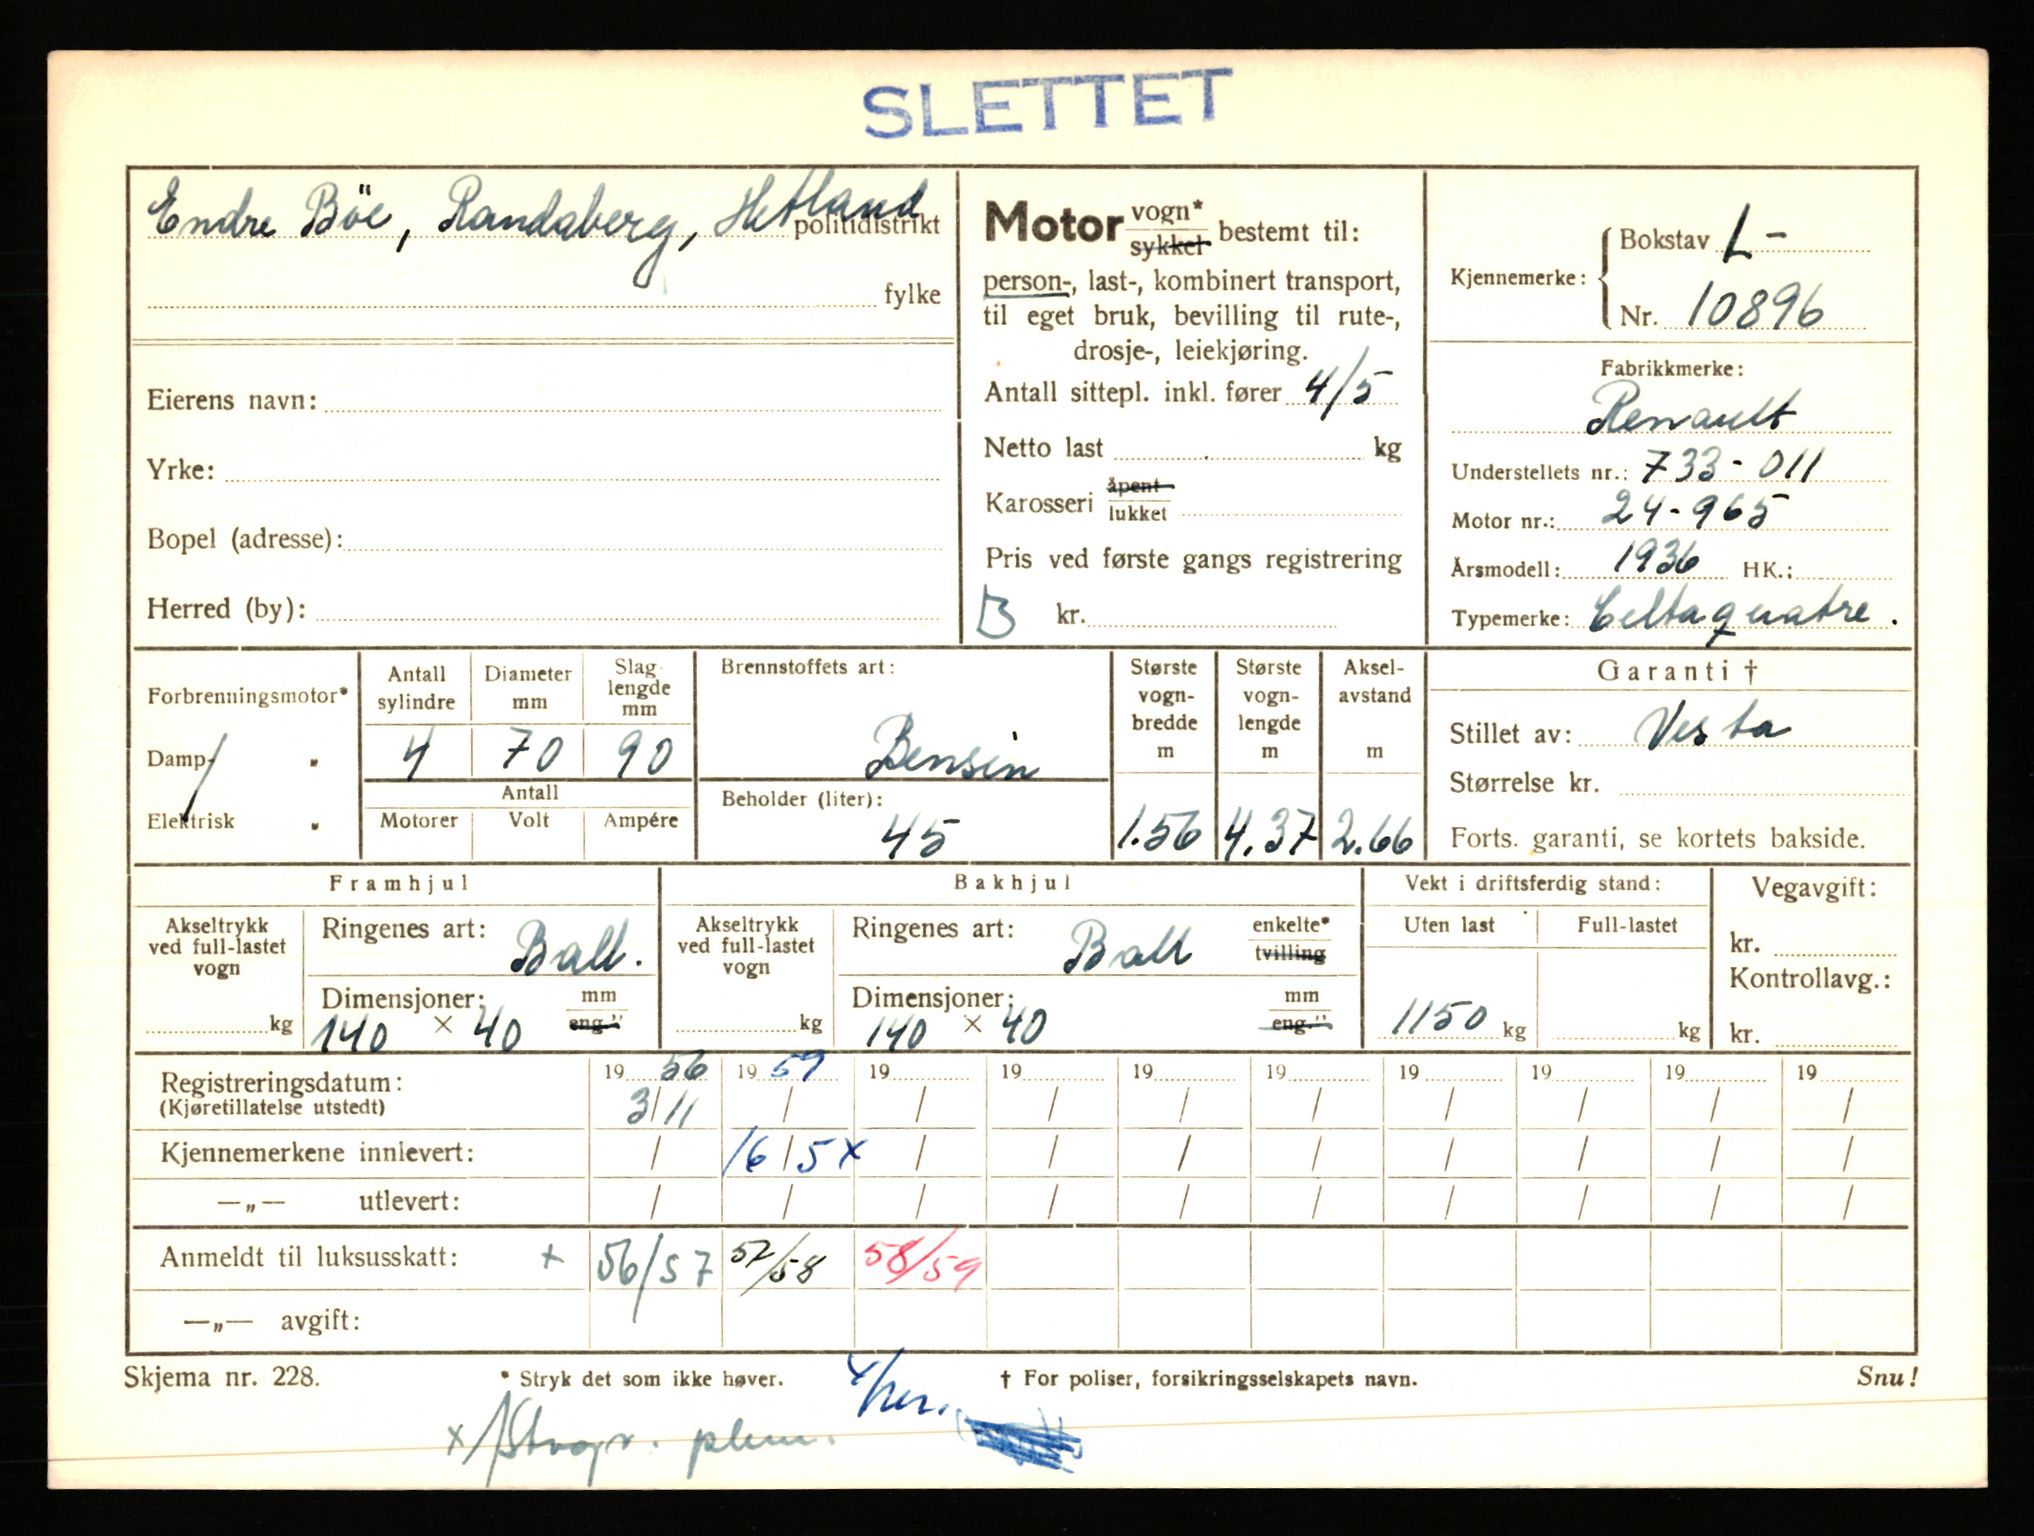 SLETTET
Endre Böe, Randaberg, Hetland politidistrikt
fylke
Eierens navn:
Yrke:
Bopel (adresse):
Herred (by):
Motor vogn* sykkel bestemt til:
person-, last-, kombinert transport,
til eget bruk, bevilling til rute-,
drosje-, leiekjøring.
Antall sittepl. inkl. fører 4/5
Netto last kg
Karosseri åpent lukket
Pris ved første gangs registrering
B kr.
Kjennemerke: Bokstav L-
Nr. 10896
Fabrikkmerke:
Renault
Understellets nr.: 733-011
Motor nr.: 24-965
Årsmodell: 1936 HK.:
Typemerke: Celtaquatre.
Forbrenningsmotor*
Damp- "
Elektrisk "
Antall sylindre
4
Diameter mm
70
Slag lengde mm
90
Antall
Motorer Volt Ampére
Brennstoffets art:
Bensin
Beholder (liter):
45
Største vogn-bredde m
1.56
Største vogn-lengde m
4.37
Aksel-avstand m
2.66
Garanti †
Stillet av: Vesta
Størrelse kr.
Forts. garanti, se kortets bakside.
Framhjul
Akseltrykk
ved full-lastet
vogn
kg
Ringenes art: Ball.
Dimensjoner: mm
140 × 40 eng."
Bakhjul
Akseltrykk
ved full-lastet
vogn
kg
Ringenes art: Ball enkelte* tvilling
Dimensjoner: mm
140 × 40 eng."
Vekt i driftsferdig stand:
Uten last Full-lastet
1150 kg kg
Vegavgift:
kr.
Kontrollavg.:
kr.
Registreringsdatum: 19 56 19 59 19 19 19 19 19 19 19 19
(Kjøretillatelse utstedt) 3/11 / / / / / / / / /
Kjennemerkene innlevert: / 16/5 x / / / / / / / /
—„— utlevert: / / / / / / / / / /
Anmeldt til luksusskatt: + 56/57 57/58 58/59
—„— avgift:
Skjema nr. 228. * Stryk det som ikke høver. † For poliser, forsikringsselskapets navn. Snu!